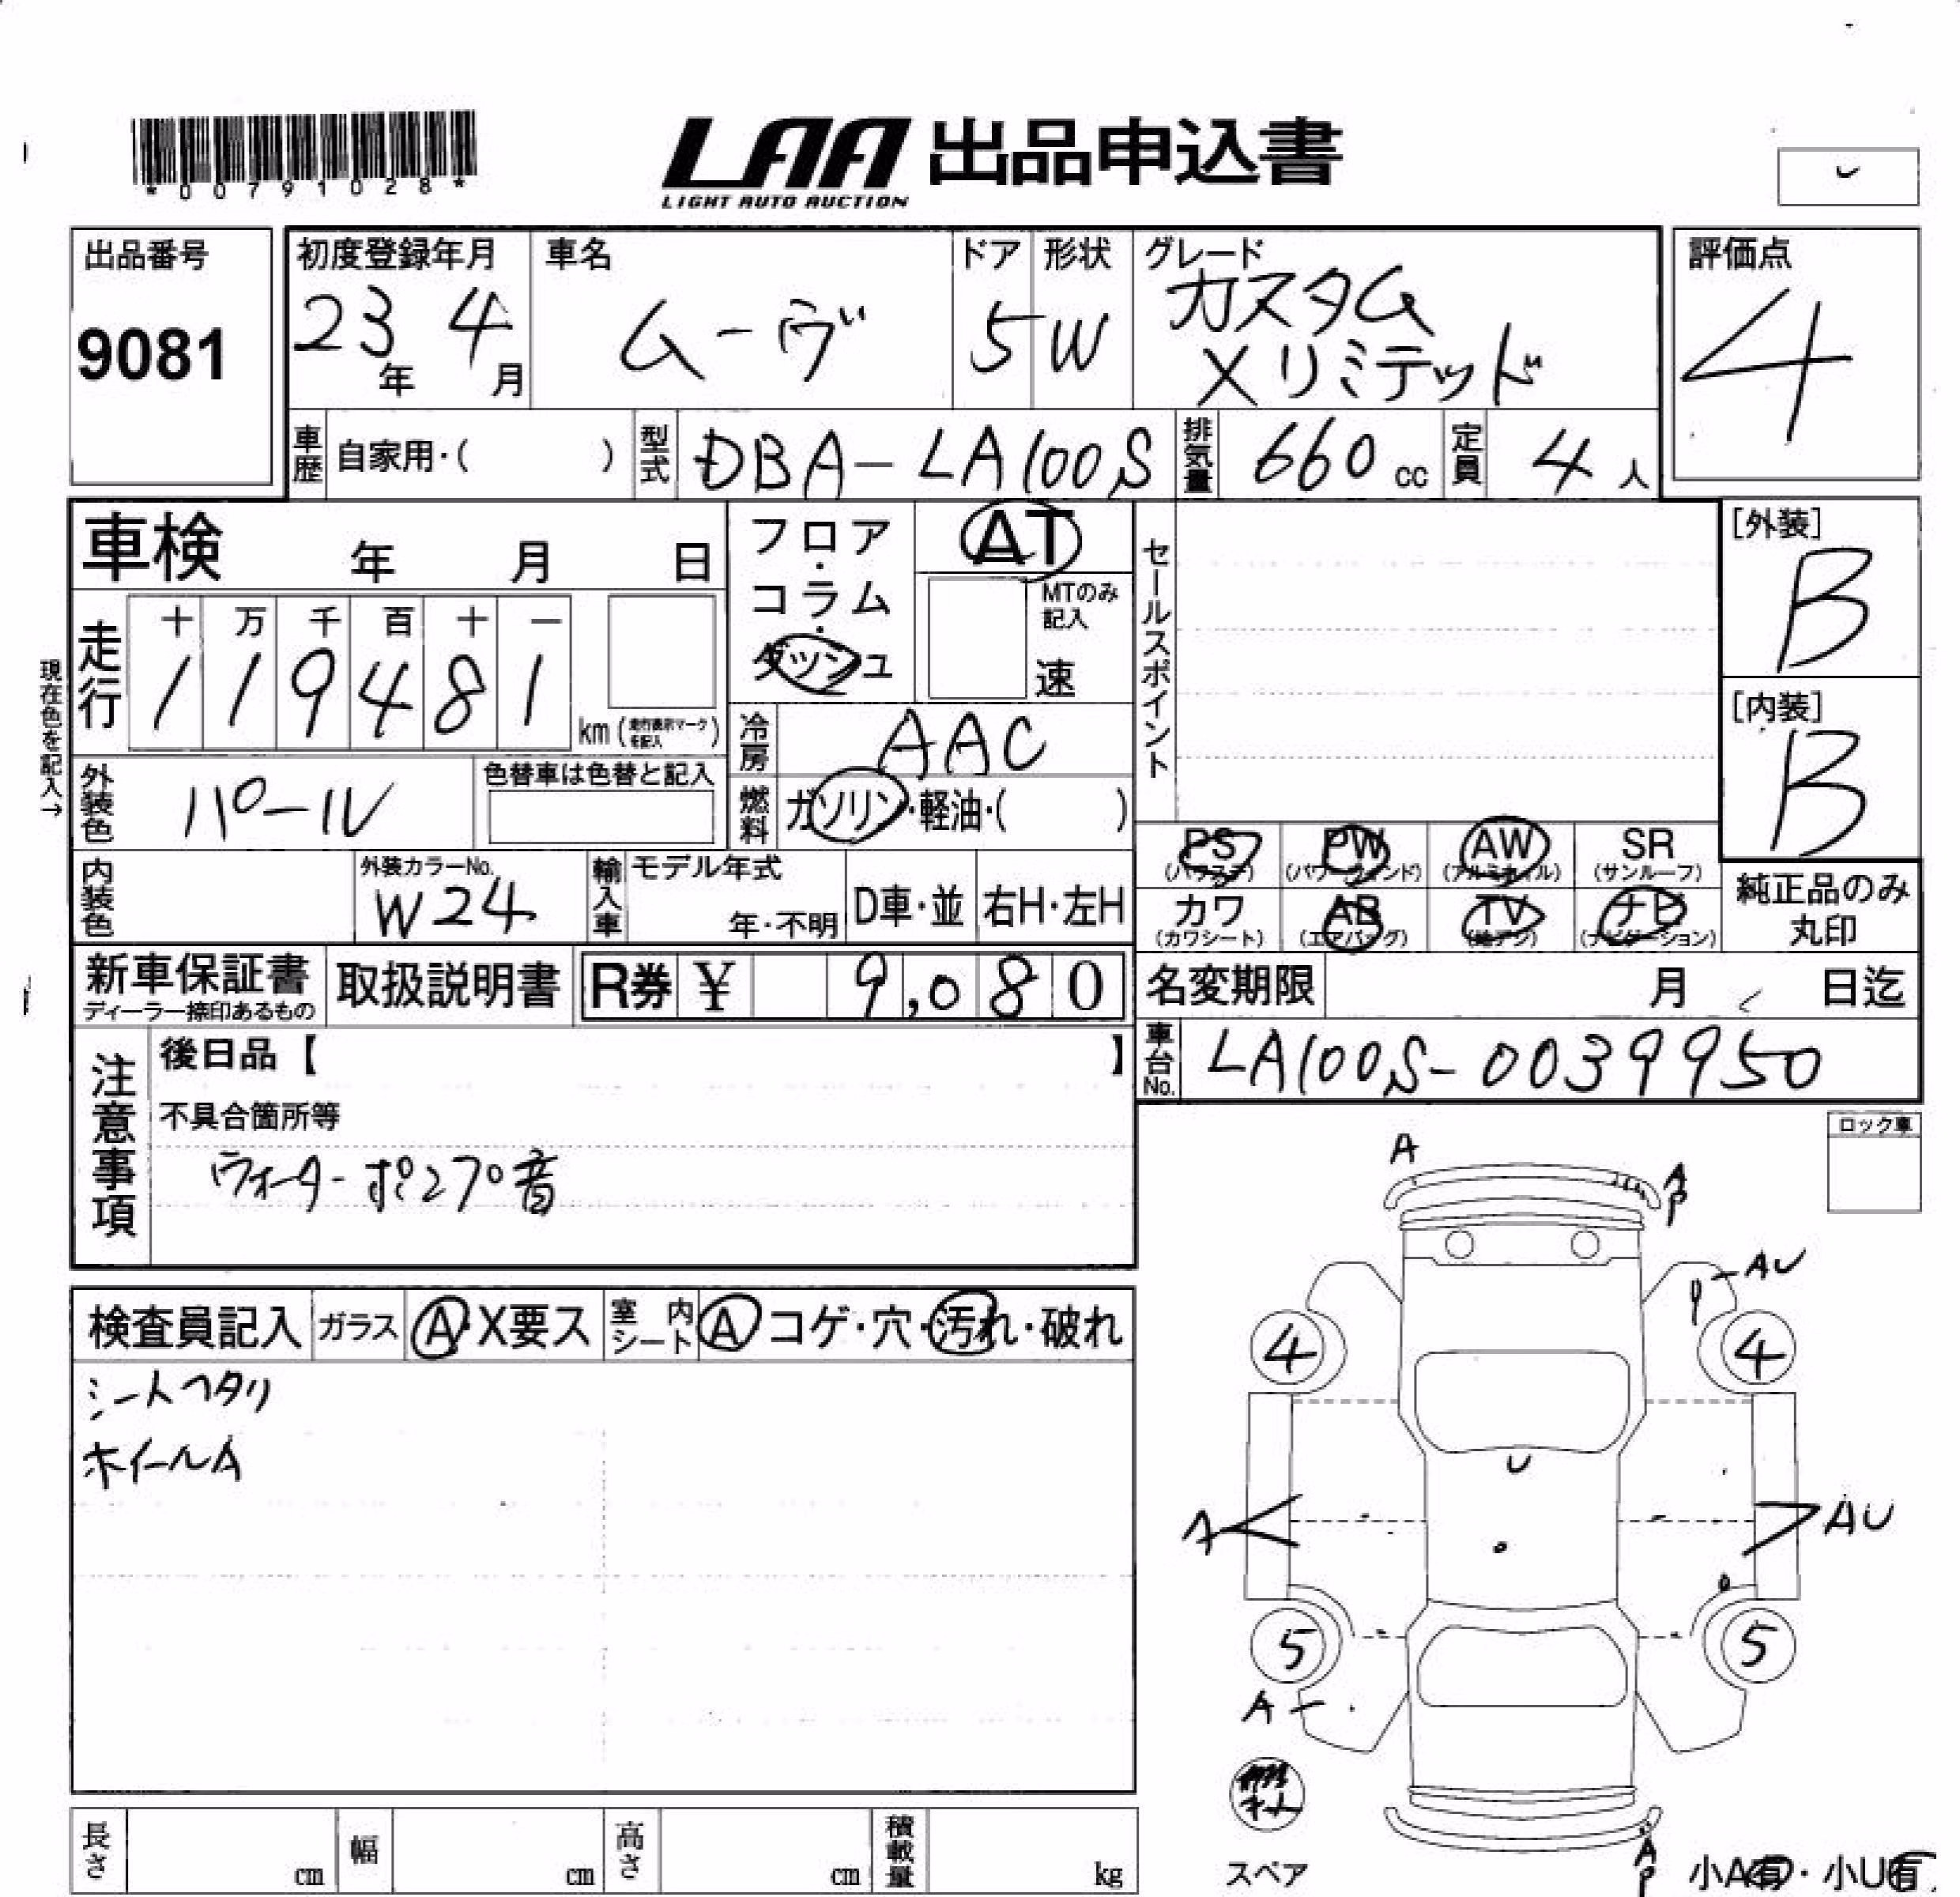 *00791028*
LAA 出品申込書
LIGHT AUTO AUCTION
出品番号
9081
初度登録年月
23年 4月
車名
ムーヴ
ドア
5
形状
W
グレード
カスタム
Xリミテッド
評価点
4
車歴
自家用・( )
型式
DBA-LA100S
排気量
660 cc
定員
4 人
車検 年 月 日
フロア・コラム・ダッシュ
AT
MTのみ記入
速
セールスポイント
[外装]
B
[内装]
B
現在色を記入→
走行
十 万 千 百 十 一
1 1 9 4 8 1
km (走行表示マークを記入)
冷房
AAC
外装色
パール
色替車は色替と記入
燃料
ガソリン・軽油・( )
内装色
外装カラーNo.
W24
輸入車
モデル年式
年・不明
D車・並
右H・左H
PS
(パワステ)
PW
(パワーウィンド)
AW
(アルミホイル)
SR
(サンルーフ)
カワ
(カワシート)
AB
(エアバッグ)
TV
(地デジ)
ナビ
(ナビゲーション)
純正品のみ
丸印
新車保証書
ディーラー捺印あるもの
取扱説明書
R券 ¥ 9,080
名変期限 月 日迄
車台No.
LA100S-0039950
注意事項
後日品【 】
不具合箇所等
ウォーターポンプ音
ロック車
検査員記入
ガラス
A・X要ス
室内シート
A コゲ・穴・汚れ・破れ
シートヘタリ
ホイールA
A
A
P
P
AU
4
4
U
A
AU
5
5
A
A
P
スペア
小A有・小U有
長さ cm
幅 cm
高さ cm
積載量 kg